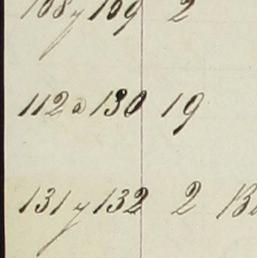 108 y 109 2
112 a 130 19
131 y 132 2